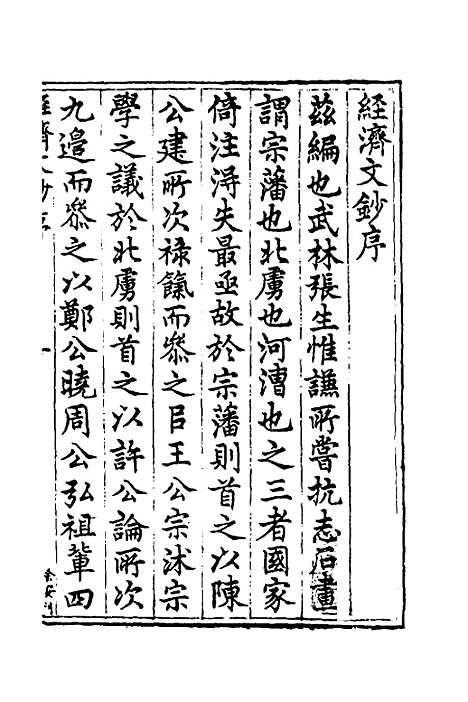 經濟文鈔序
茲編也武林張生惟謙所嘗抗志石畫
謂宗藩也北虜也河漕也之三者國家
倚注得失最亟故於宗藩則首之以陳
公建所次祿餼而叅之以王公宗沭宗
學之議於北虜則首之以許公論所次
九邊而叅之以鄭公曉周公弘祖輩四
經濟文鈔序
一